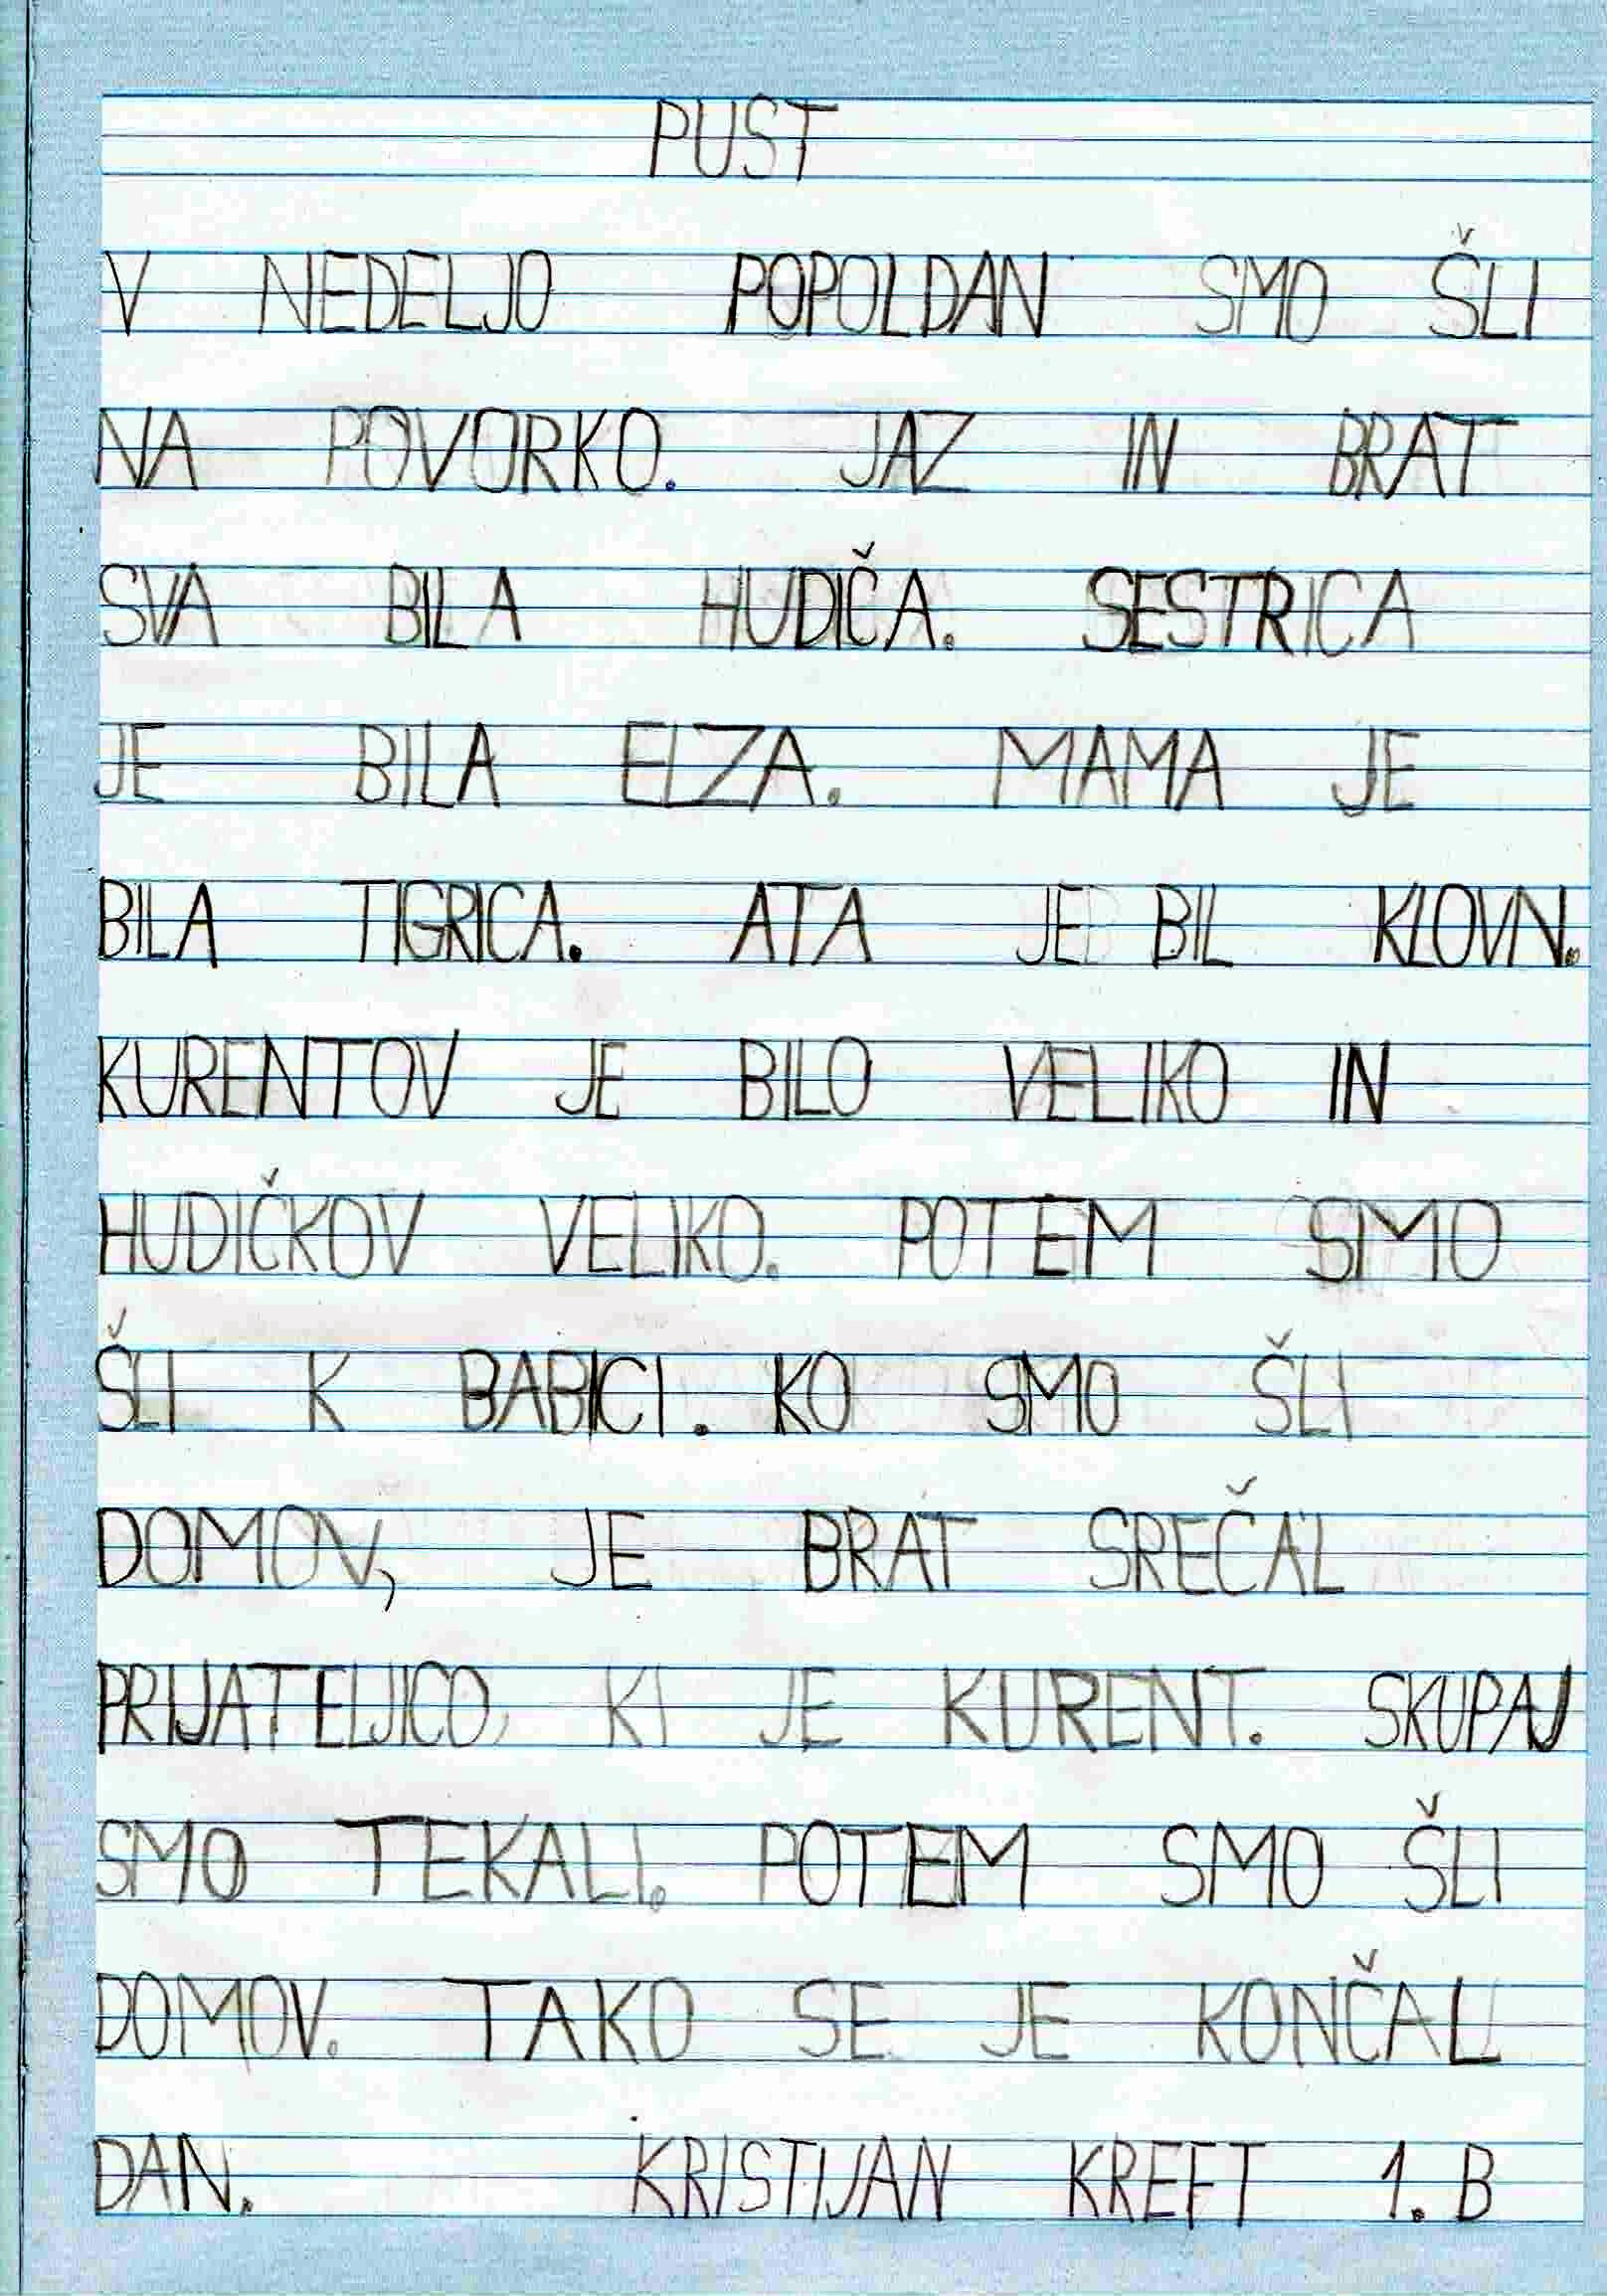 PUST
V NEDELJO POPOLDAN SMO ŠLI
NA POVORKO. JAZ IN BRAT
SVA BILA HUDIČA. SESTRICA
JE BILA ELZA. MAMA JE
BILA TIGRICA. ATA JE BIL KLOVN.
KURENTOV JE BILO VELIKO IN
HUDIČKOV VELIKO. POTEM SMO
ŠLI K BABICI. KO SMO ŠLI
DOMOV, JE BRAT SREČAL
PRIJATELJICO, KI JE KURENT. SKUPAJ
SMO TEKALI. POTEM SMO ŠLI
DOMOV. TAKO SE JE KONČAL
DAN. KRISTIJAN KREFT 1. B